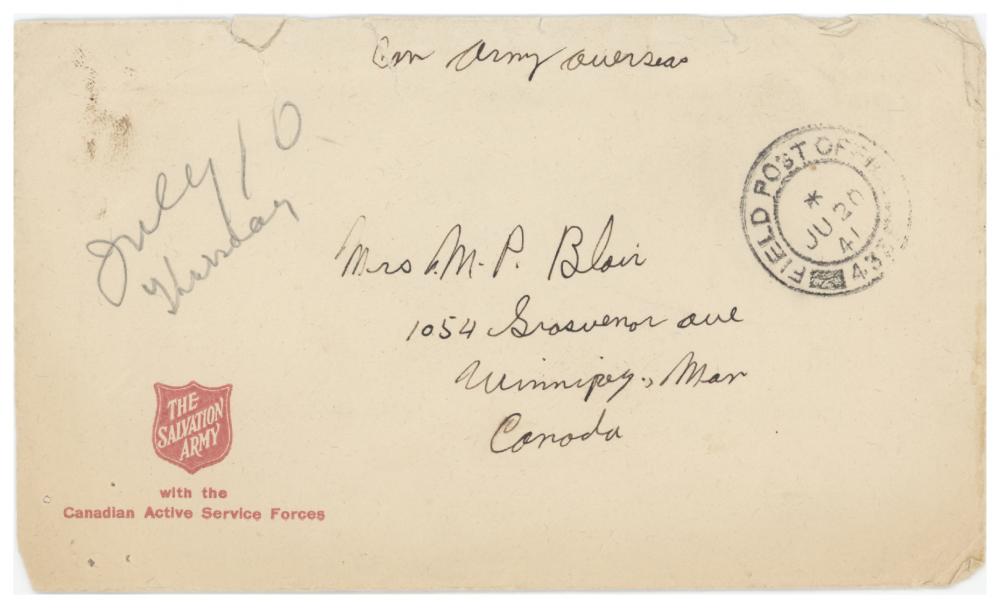 Can Army Overseas
July 10
Thursday
FIELD POST OFFICE
*
JU 20
41
43
Mrs. M. P. Blair
1054 Grosvenor ave
Winnipeg, Man
Canada
THE
SALVATION
ARMY
with the
Canadian Active Service Forces